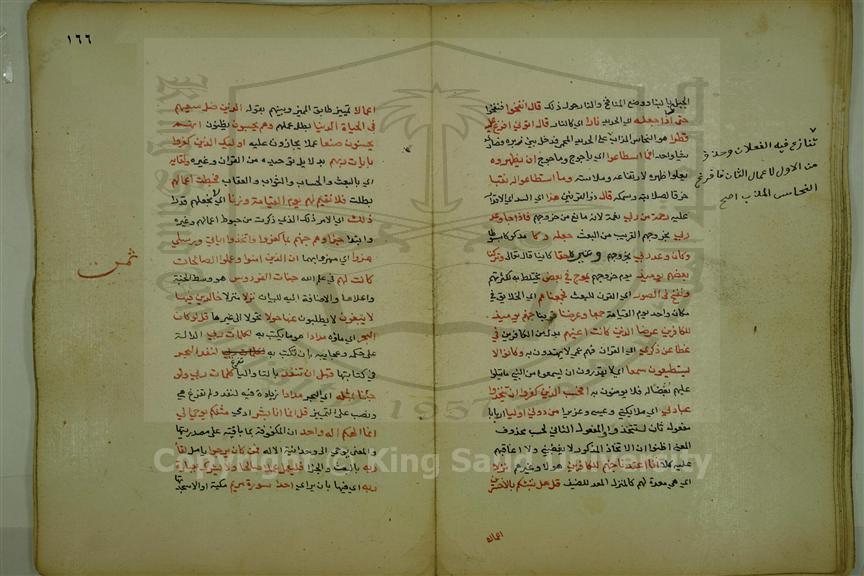 الجبلين بالبنا ووضع المنافخ والنار حول ذلك قال انفخوا فنفخوا
حتى اذا جعله اي الحديد نارا اي كالنار قال اتوني افرغ عليه
قطرا هو النحاس المذاب على الحديد المحمى فدخل بين زبره فصارا
شيا واحدا فما اسطاعوا اي ياجوج وماجوج ان يظهروه
يعلوا ظهره لارتفاعه وملاسته وما استطاعوا له نقبا
خرقا لصلابته وسمكه قال ذو القرنين هذا اي السد اي الاقدار
عليه رحمة من ربي نعمة لانه مانع من خروجهم فاذا جاء وعد
ربي بخروجهم القريب من البعث جعله دكا مدكوكا مبسوطا
وكان وعد ربي بخروجهم وغيره حقا كاينا قال تعالى وتركنا
بعضهم يومئذ يوم خروجهم يموج في بعض يختلط به لكثرتهم
ونفخ في الصور اي القرن للبعث فجمعناهم اي الخلايق في
مكان واحد يوم القيامة جمعا وعرضنا قربنا جهنم يومئذ
للكافرين عرضا الذين كانت اعينهم بدل من الكافرين في
غطا عن ذكري اي القران فهم عمي لا يهتدون به وكانوا لا
يستطيعون سمعا اي لا يقدرون ان يسمعوا من النبي ما يتلوا
عليهم بغضا له فلا يومنون به افحسب الذين كفروا ان يتخذوا
عبادي اي ملايكتي وعيسى وعزيرا من دوني اوليا اربابا
مفعول ثان ليتخذوا والمفعول الثاني لحسب محذوف
المعنى اظنوا ان الاتخاذ المذكور لا يغضبني ولا اعاقبهم
عليه كلا انا اعتدنا جهنم للكافرين هولا وغيرهم نزلا
اي هي معدة لهم كالمنزل المعد للضيف قل هل ننبئكم بالاخسرين
اعمالا
تنازع فيه الفعلان وحذف
من الاول لاعمال الثاني فافرغ
النحاس المذاب اصح
١٦٦
اعمالا تمييز طابق المميز وبينهم بقوله الذين ضل سعيهم
في الحياة الدنيا بطل عملهم وهم يحسبون يظنون انهم
يحسنون صنعا عملا يجازون عليه اوليك الذين كفروا
بايات ربهم بدلايل توحيده من القران وغيره ولقايه
اي بالبعث والحساب والثواب والعقاب فحبطت اعمالهم
بطلت فلا نقيم لهم يوم القيامة وزنا اي لا نجعل لهم قدرا
ذلك اي الامر ذلك الذي ذكرت من حبوط اعمالهم وغيره
وابتدا جزاوهم جهنم بما كفروا واتخذوا اياتي ورسلي
هزوا اي مهزوا بهما ان الذين امنوا وعملوا الصالحات
كانت لهم في علم الله جنات الفردوس هو وسط الجنة
واعلاها والاضافة اليه للبيان نزلا منزلا خالدين فيها
لا يبغون لا يطلبون عنها حولا تحولا الى غيرها قل لو كان
البحر اي ماوه مدادا هو ما يكتب به لكلمات ربي الدالة
على حكمه وعجايبه بان تكتب به لنفد البحر
في كتابتها قبل ان تنفد بالتا واليا كلمات ربي ولو
جئنا بمثله اي البحر مددا زيادة فيه لنفد ولم تفرغ هي
ونصبه على التمييز قل انما انا بشر ادمي مثلكم يوحى الي
انما الهكم اله واحد ان المكفوفة بما باقية على مصدريتها
والمعنى يوحى الي وحدانية الاله فمن كان يرجوا يامل لقا
ربه بالبعث والجزا فليعمل عملا صالحا ولا يشرك بعبادة
ربه اي فيها بان يراءي احدا سورة مريم مكية او الا سجدتها
تمت
Copyright © King Saud University
1957